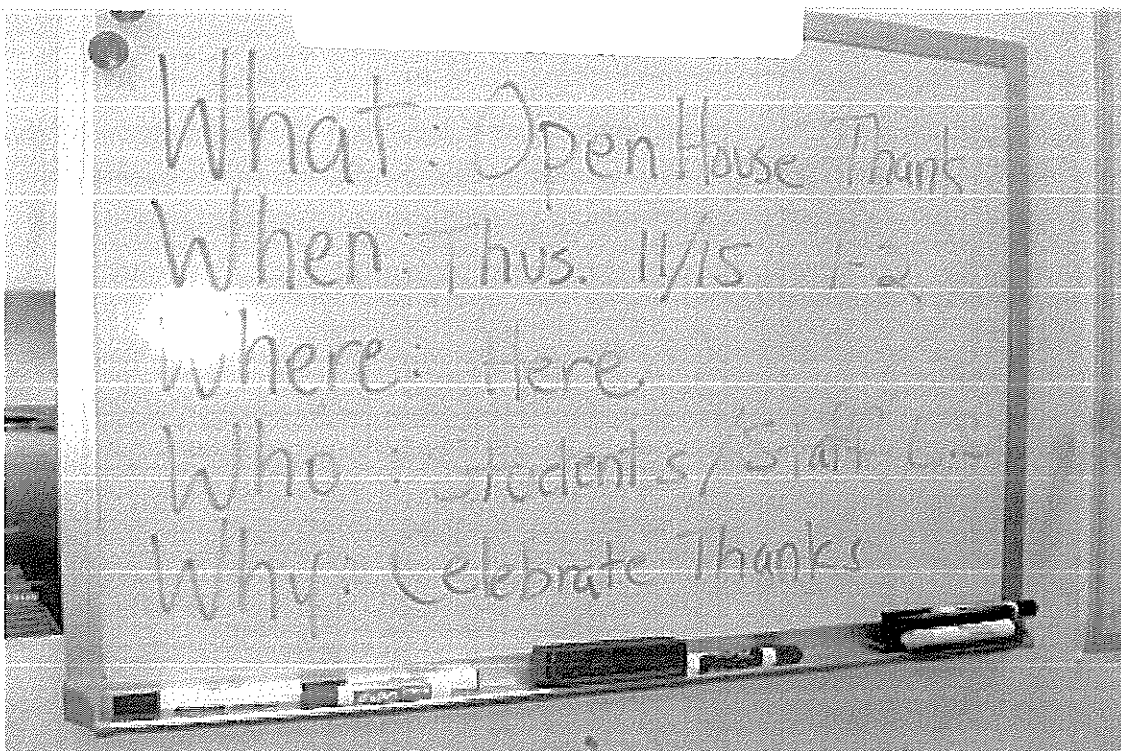 What: Open House Thank
When: Thus. 11/15 1-2
Where: Here
Who: Students/ Staff
Why: Celebrate Thanks